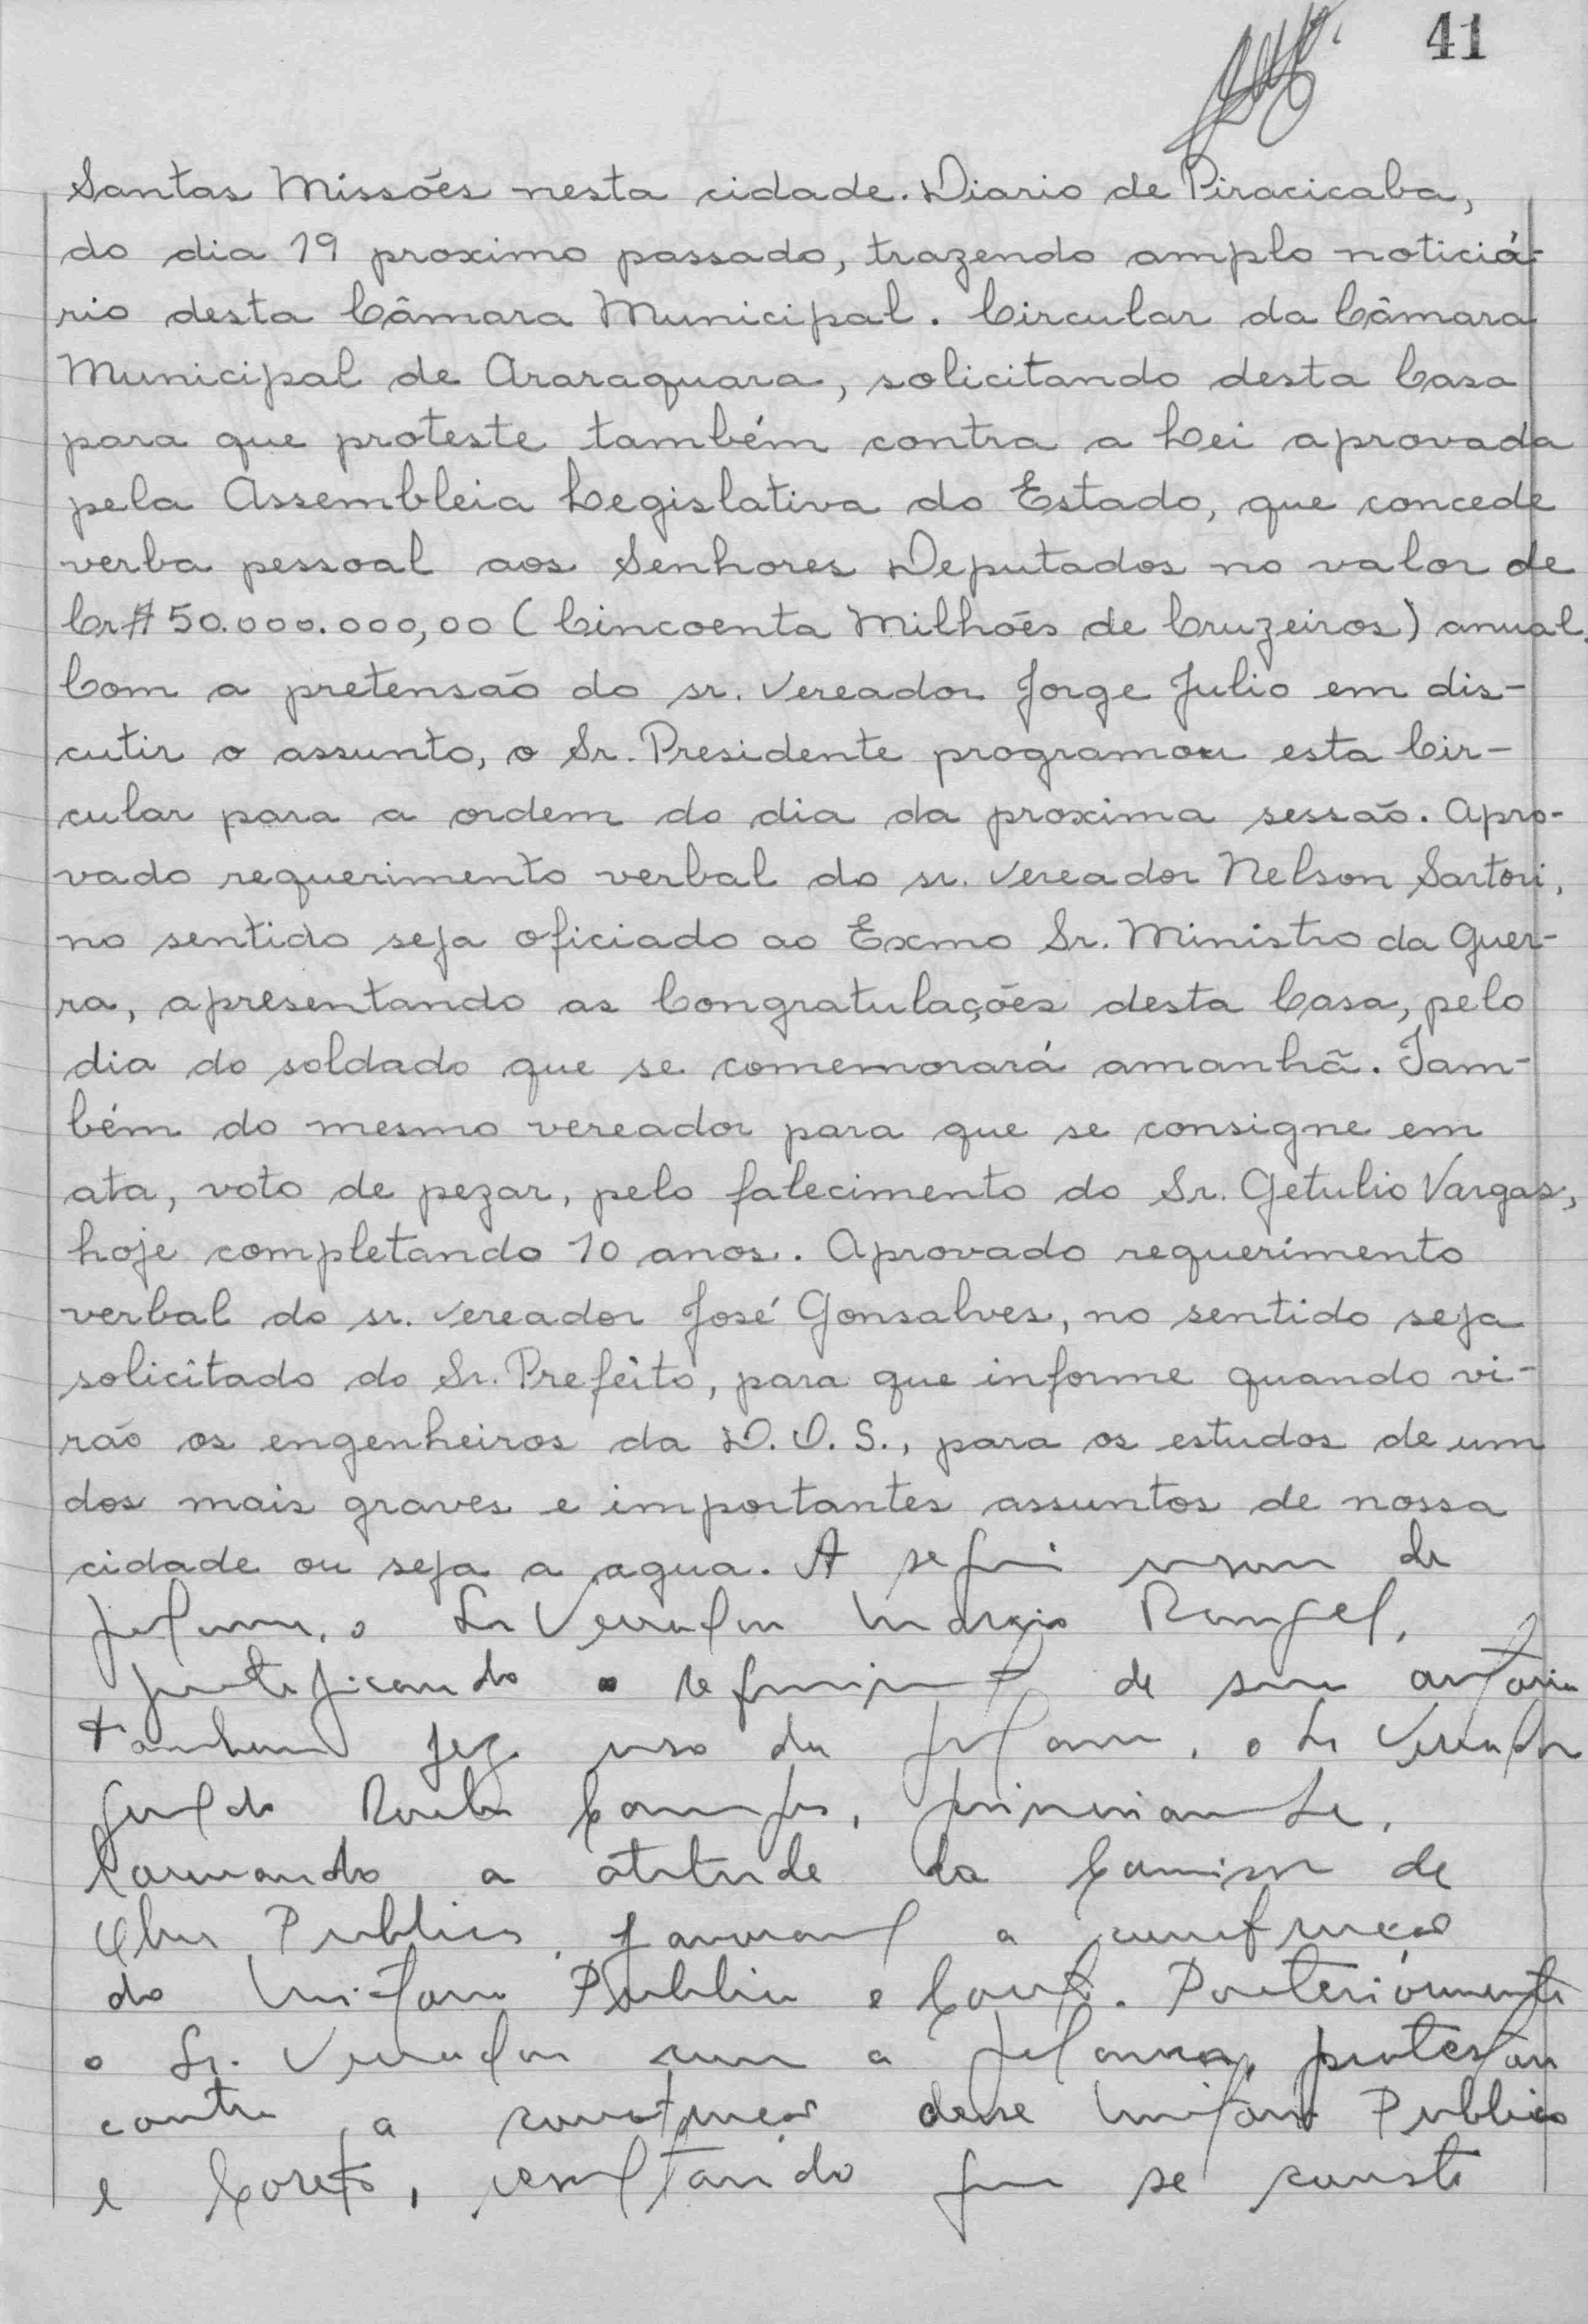 41
Santas Missões nesta cidade. Diario de Piracicaba,
do dia 19 proximo passado, trazendo amplo noticiá-
rio desta Câmara Municipal. Circular da Câmara
Municipal de Araraquara, solicitando desta Casa
para que proteste também contra a Lei aprovada
pela Assembleia Legislativa do Estado, que concede
verba pessoal aos Senhores Deputados no valor de
Cr$ 50.000.000,00 (Cincoenta Milhões de Cruzeiros) anual.
Com a pretensão do sr. vereador Jorge Julio em dis-
cutir o assunto, o Sr. Presidente programou esta Cir-
cular para a ordem do dia da proxima sessão. Apro-
vado requerimento verbal do sr. vereador Nelson Sartori,
no sentido seja oficiado ao Exmo Sr. Ministro da Guer-
ra, apresentando as Congratulações desta Casa, pelo
dia do soldado que se comemorará amanhã. Tam-
bém do mesmo vereador para que se consigne em
ata, voto de pezar, pelo falecimento do Sr. Getulio Vargas,
hoje completando 10 anos. Aprovado requerimento
verbal do sr. vereador José Gonsalves, no sentido seja
solicitado do Sr. Prefeito, para que informe quando vi-
rão os engenheiros da D.O.S., para os estudos de um
dos mais graves e importantes assuntos de nossa
cidade ou seja a agua. A seguir usou da
palavra, o Sr Vereador Rangel,
justificando o requerimento de sua autoria
tambem fez uso da palavra, o Sr Vereador
Campos,
a atitude da Comissão de
Obras Publica a construção
do Mictorio Publico e Coreto. Posteriormente
o Sr. Vereador com a palavra, protestou
contra a construção desse Mictorio Publico
e Coreto, que se